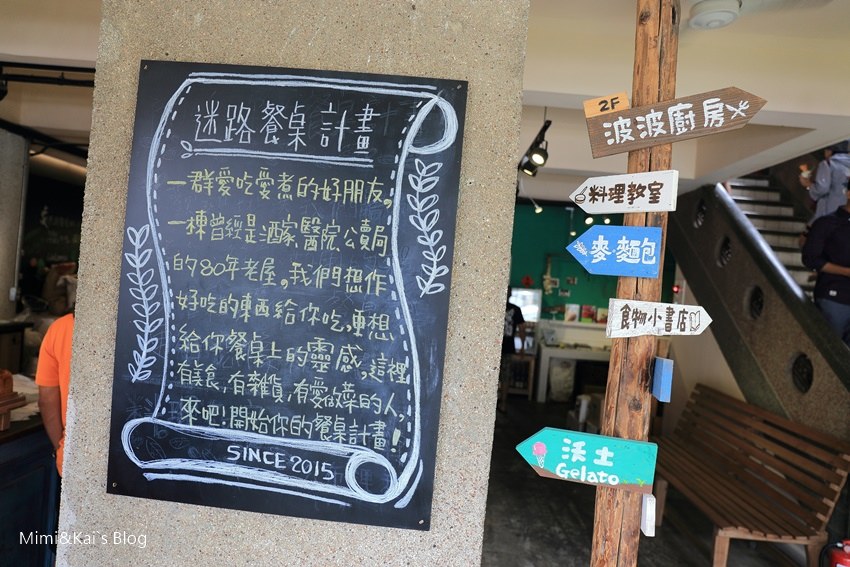 迷路餐桌計畫
一群愛吃愛煮的好朋友，
一棟曾經是酒家、醫院、公賣局
的80年老屋。我們想作
好吃的東西給你吃，更想
給你餐桌上的靈感，這裡
有美食，有雜貨，有愛做菜的人，
來吧！開始你的餐桌計畫！
SINCE 2015
2F
波波廚房
料理教室
麥·麵包
食物小書店
沃土
Gelato
Mimi&Kai's Blog